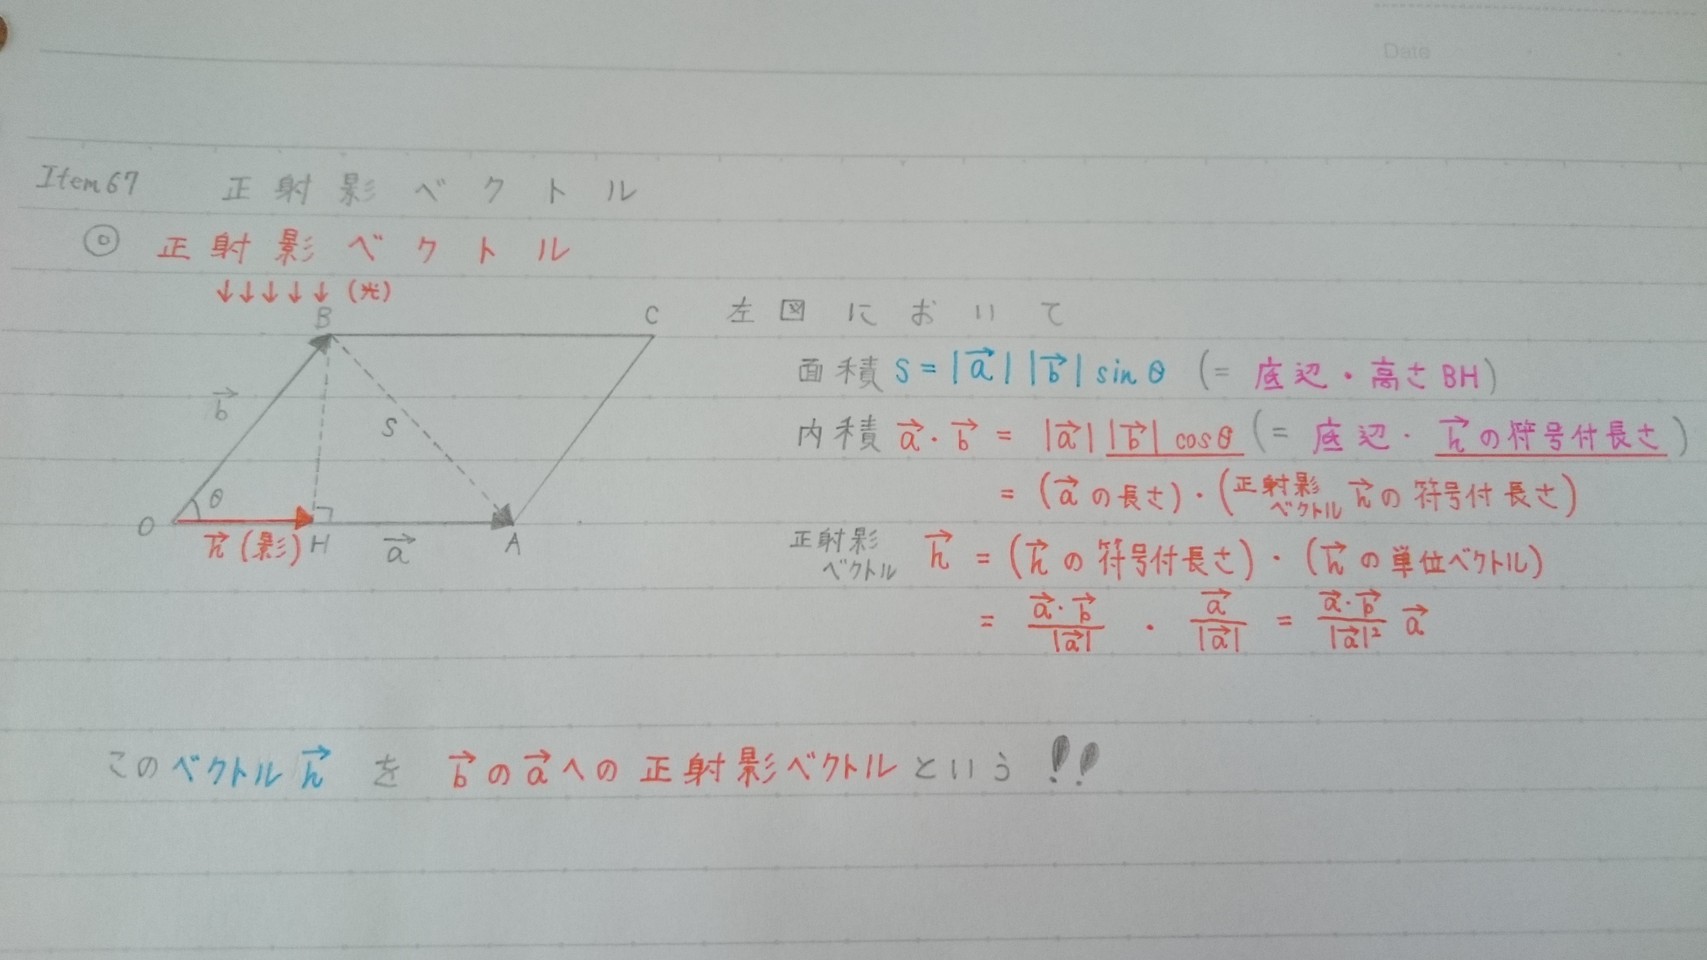 Date
Item67 正射影ベクトル
◎ 正射影ベクトル
↓↓↓↓↓ (光)
B C
b⃗
S
θ
O h⃗(影) H a⃗ A
左図において
面積 S = |a⃗||b⃗| sin θ (= 底辺・高さBH)
内積 a⃗・b⃗ = |a⃗||b⃗| cosθ (= 底辺・h⃗の符号付長さ)
= (a⃗の長さ)・(正射影ベクトル h⃗の符号付長さ)
正射影ベクトル h⃗ = (h⃗の符号付長さ)・(h⃗の単位ベクトル)
= a⃗・b⃗/|a⃗| ・ a⃗/|a⃗| = a⃗・b⃗/|a⃗|² a⃗
このベクトルh⃗を b⃗のa⃗への正射影ベクトルという!!